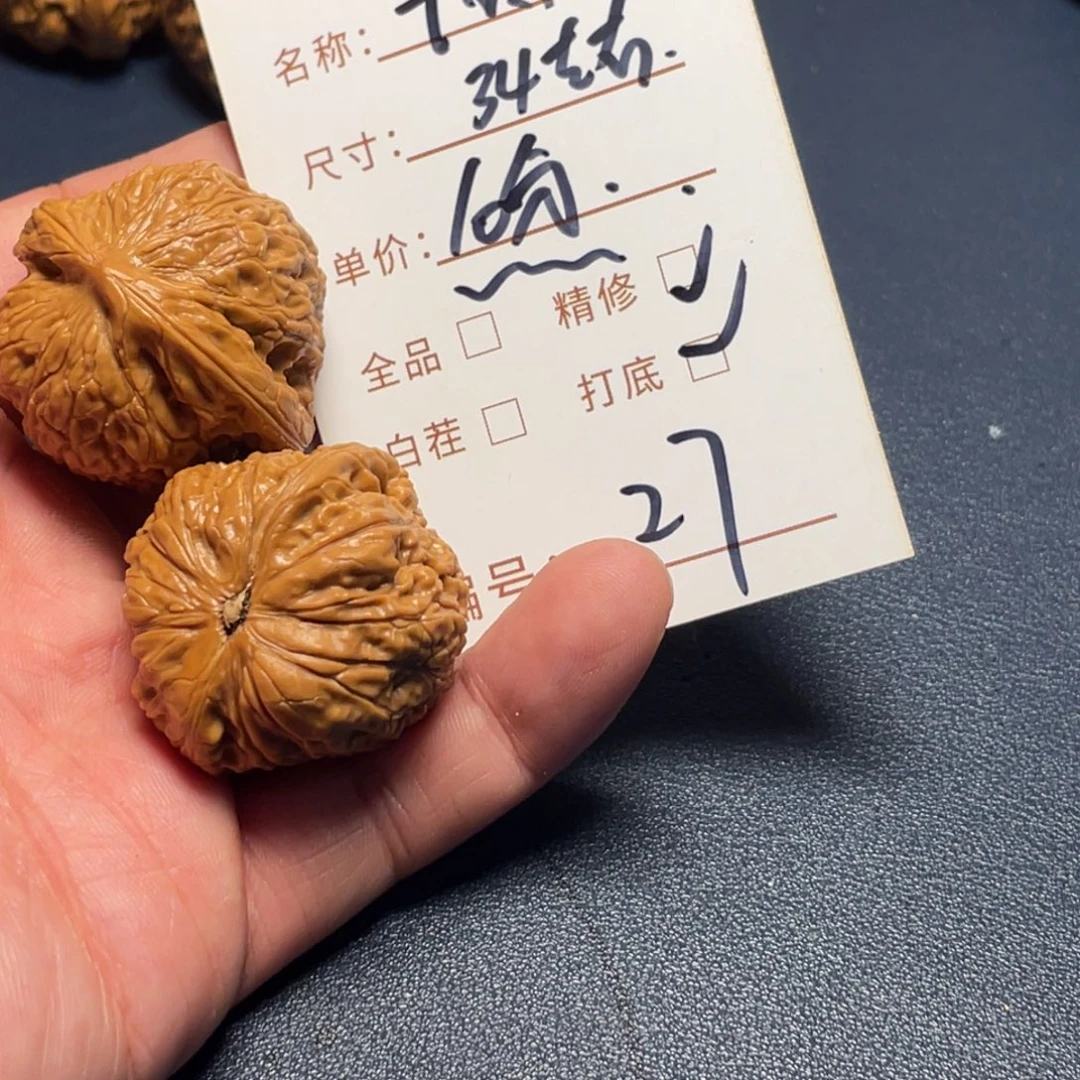 名称：
尺寸：34左右.
单价：
精修
全品
打底
白茬
编号：27